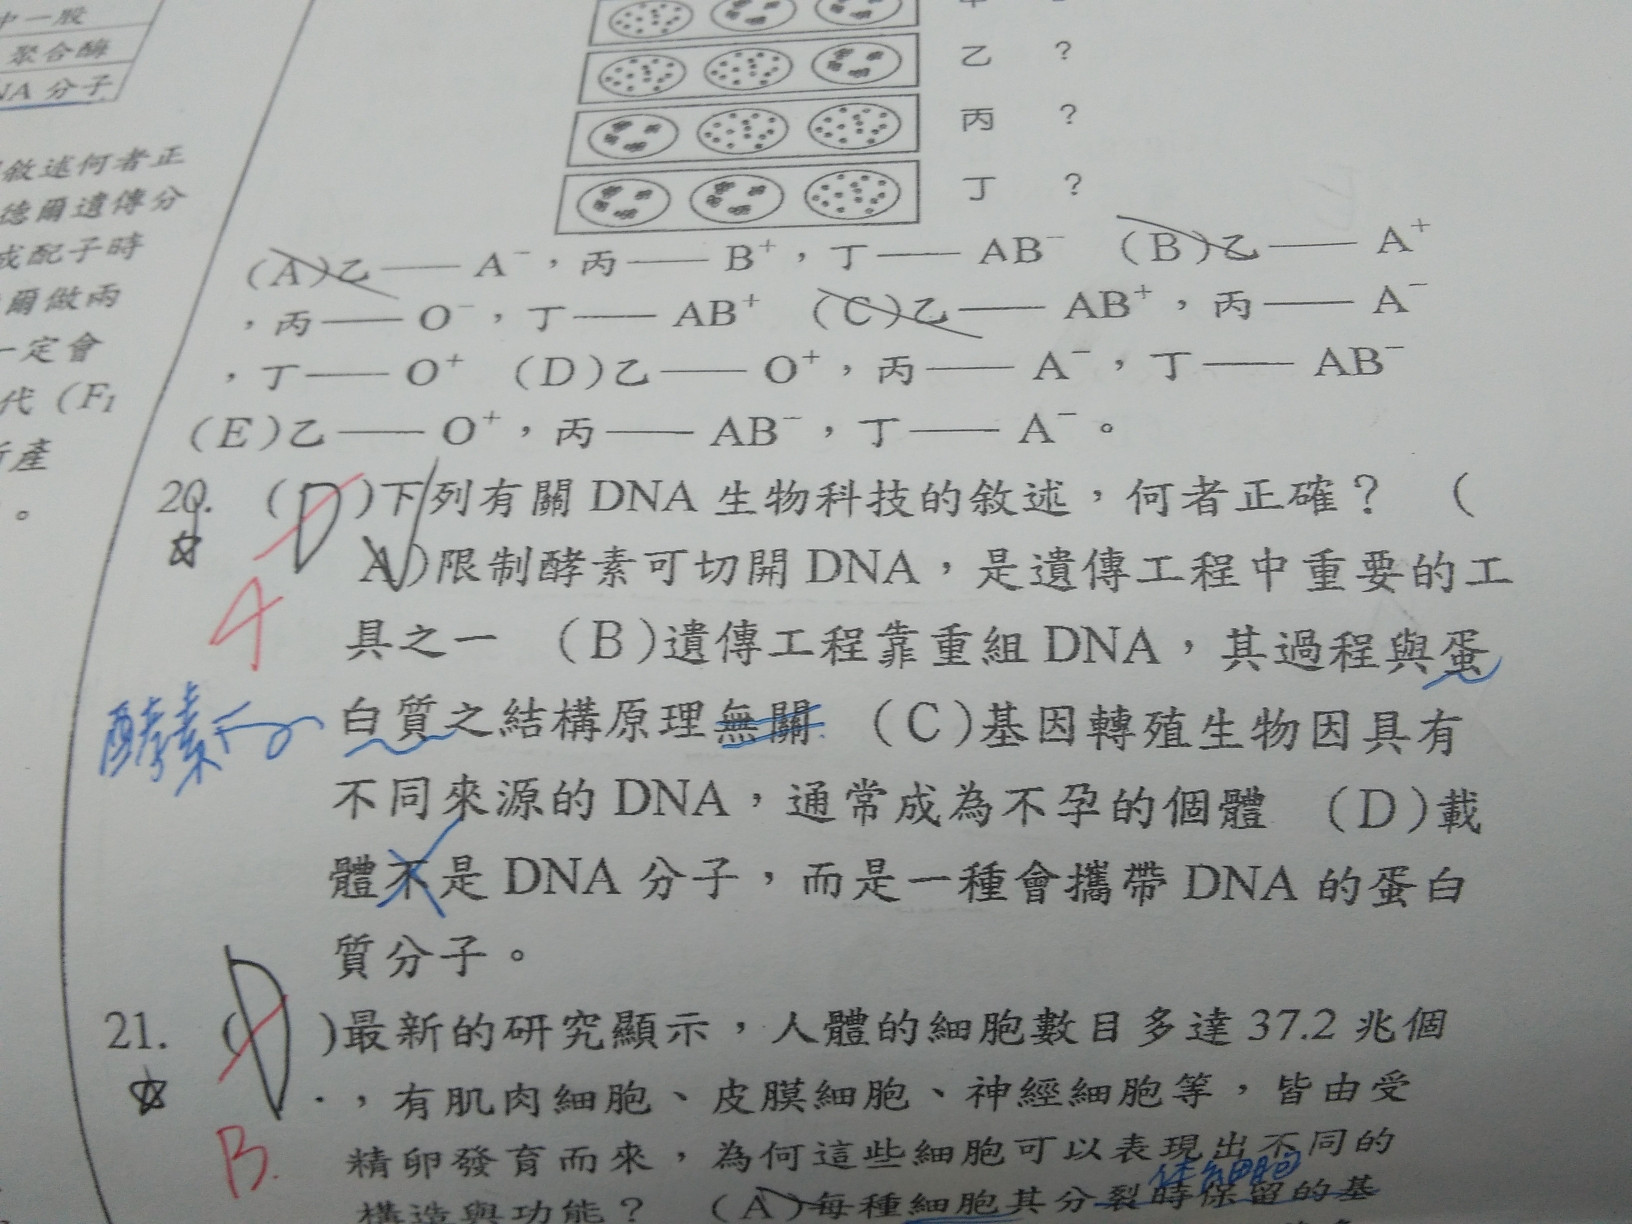 中一股
聚合酶
NA 分子
敘述何者正
德爾遺傳分
成配子時
爾做兩
一定會
代（F1
產
。
乙 ?
丙 ?
丁 ?
(A)乙—— A⁻，丙—— B⁺，丁—— AB⁻ (B)乙—— A⁺
，丙—— O⁻，丁—— AB⁺ (C)乙—— AB⁺，丙—— A⁻
，丁—— O⁺ (D)乙—— O⁺，丙—— A⁻，丁—— AB⁻
(E)乙—— O⁺，丙—— AB⁻，丁—— A⁻。
20. ( D )下列有關 DNA 生物科技的敘述，何者正確？ (
A)限制酵素可切開 DNA，是遺傳工程中重要的工
A
具之一 (B)遺傳工程靠重組 DNA，其過程與蛋
酵素
白質之結構原理無關 (C)基因轉殖生物因具有
不同來源的 DNA，通常成為不孕的個體 (D)載
體不是 DNA 分子，而是一種會攜帶 DNA 的蛋白
質分子。
21. ( D )最新的研究顯示，人體的細胞數目多達 37.2 兆個
，有肌肉細胞、皮膜細胞、神經細胞等，皆由受
B.
精卵發育而來，為何這些細胞可以表現出不同的
體細胞
構造與功能？ (A)每種細胞其分裂時保留的基